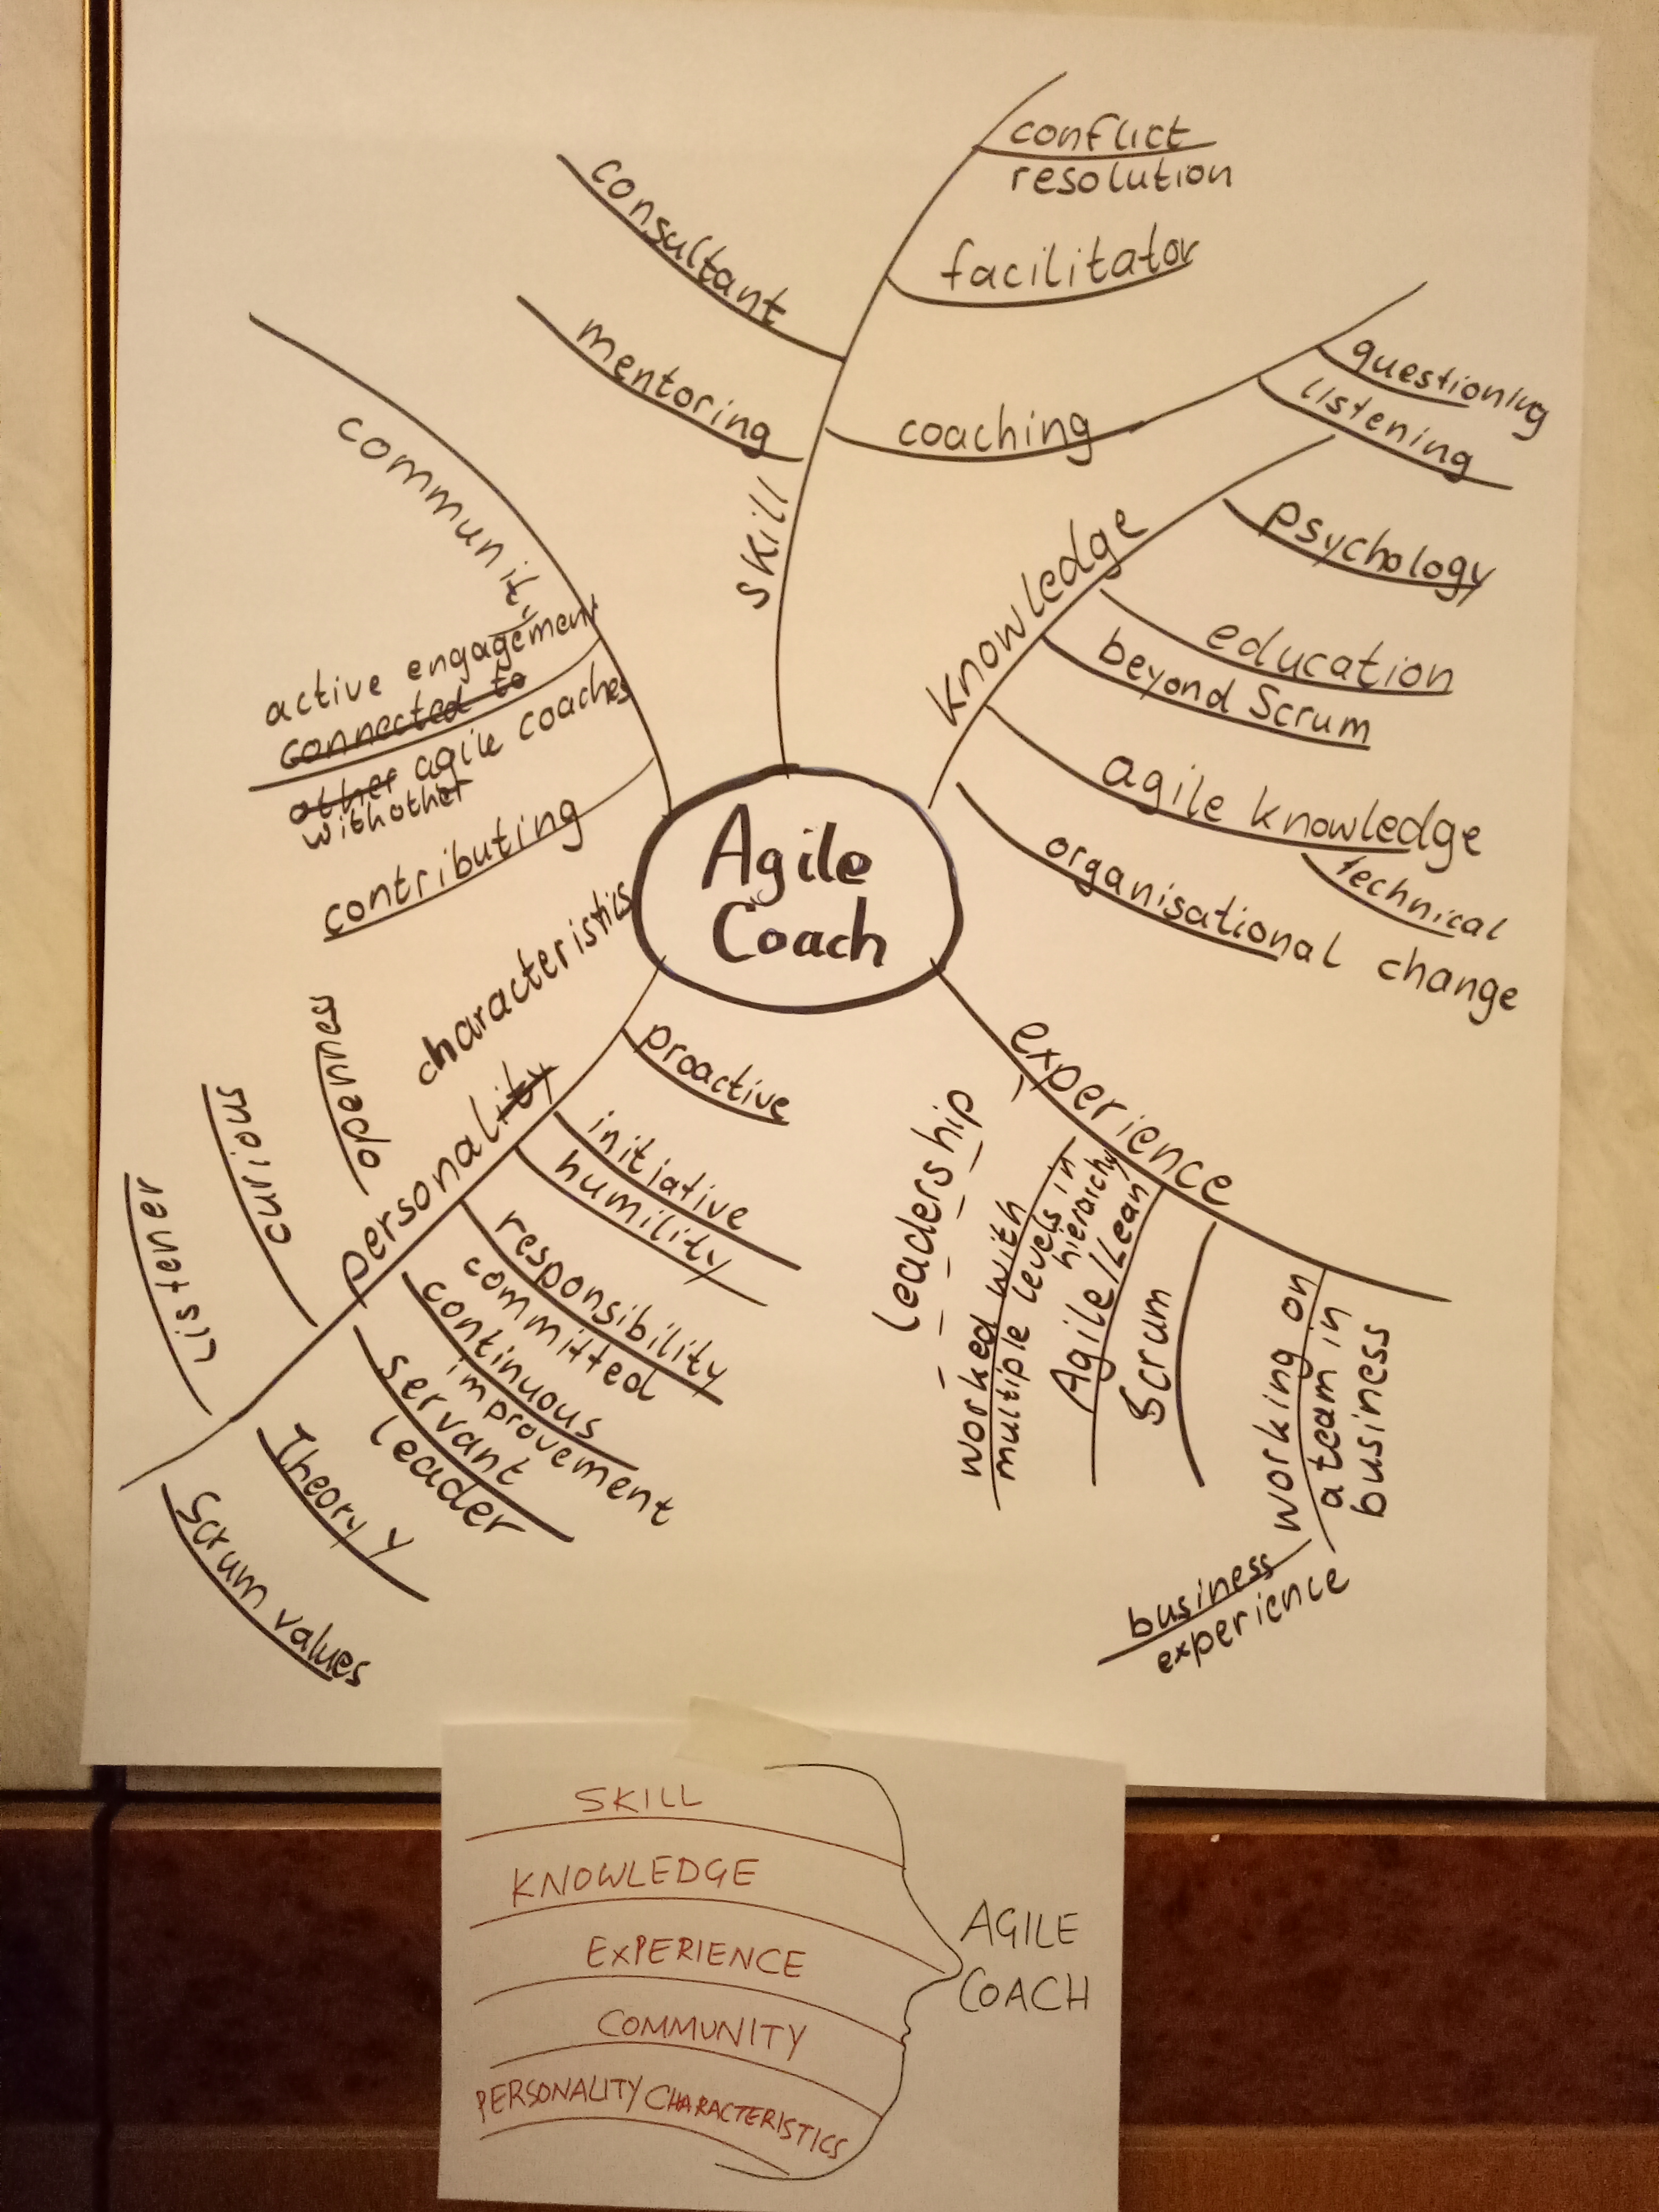 conflict
resolution
facilitator
consultant
mentoring
coaching
questioning
listening
skill
knowledge
psychology
education
beyond Scrum
agile knowledge
technical
organisational change
community
active engagement
connected to
other agile coaches
with other
contributing
Agile
Coach
characteristics
personality
openness
curious
Listener
proactive
initiative
humility
responsibility
committed
continuous
improvement
servant
leader
Theory Y
Scrum values
experience
Leadership
worked with
multiple levels in
hierarchy
Agile/Lean
Scrum
working on
a team in
business
business
experience
SKILL
KNOWLEDGE
EXPERIENCE
COMMUNITY
PERSONALITY CHARACTERISTICS
AGILE
COACH